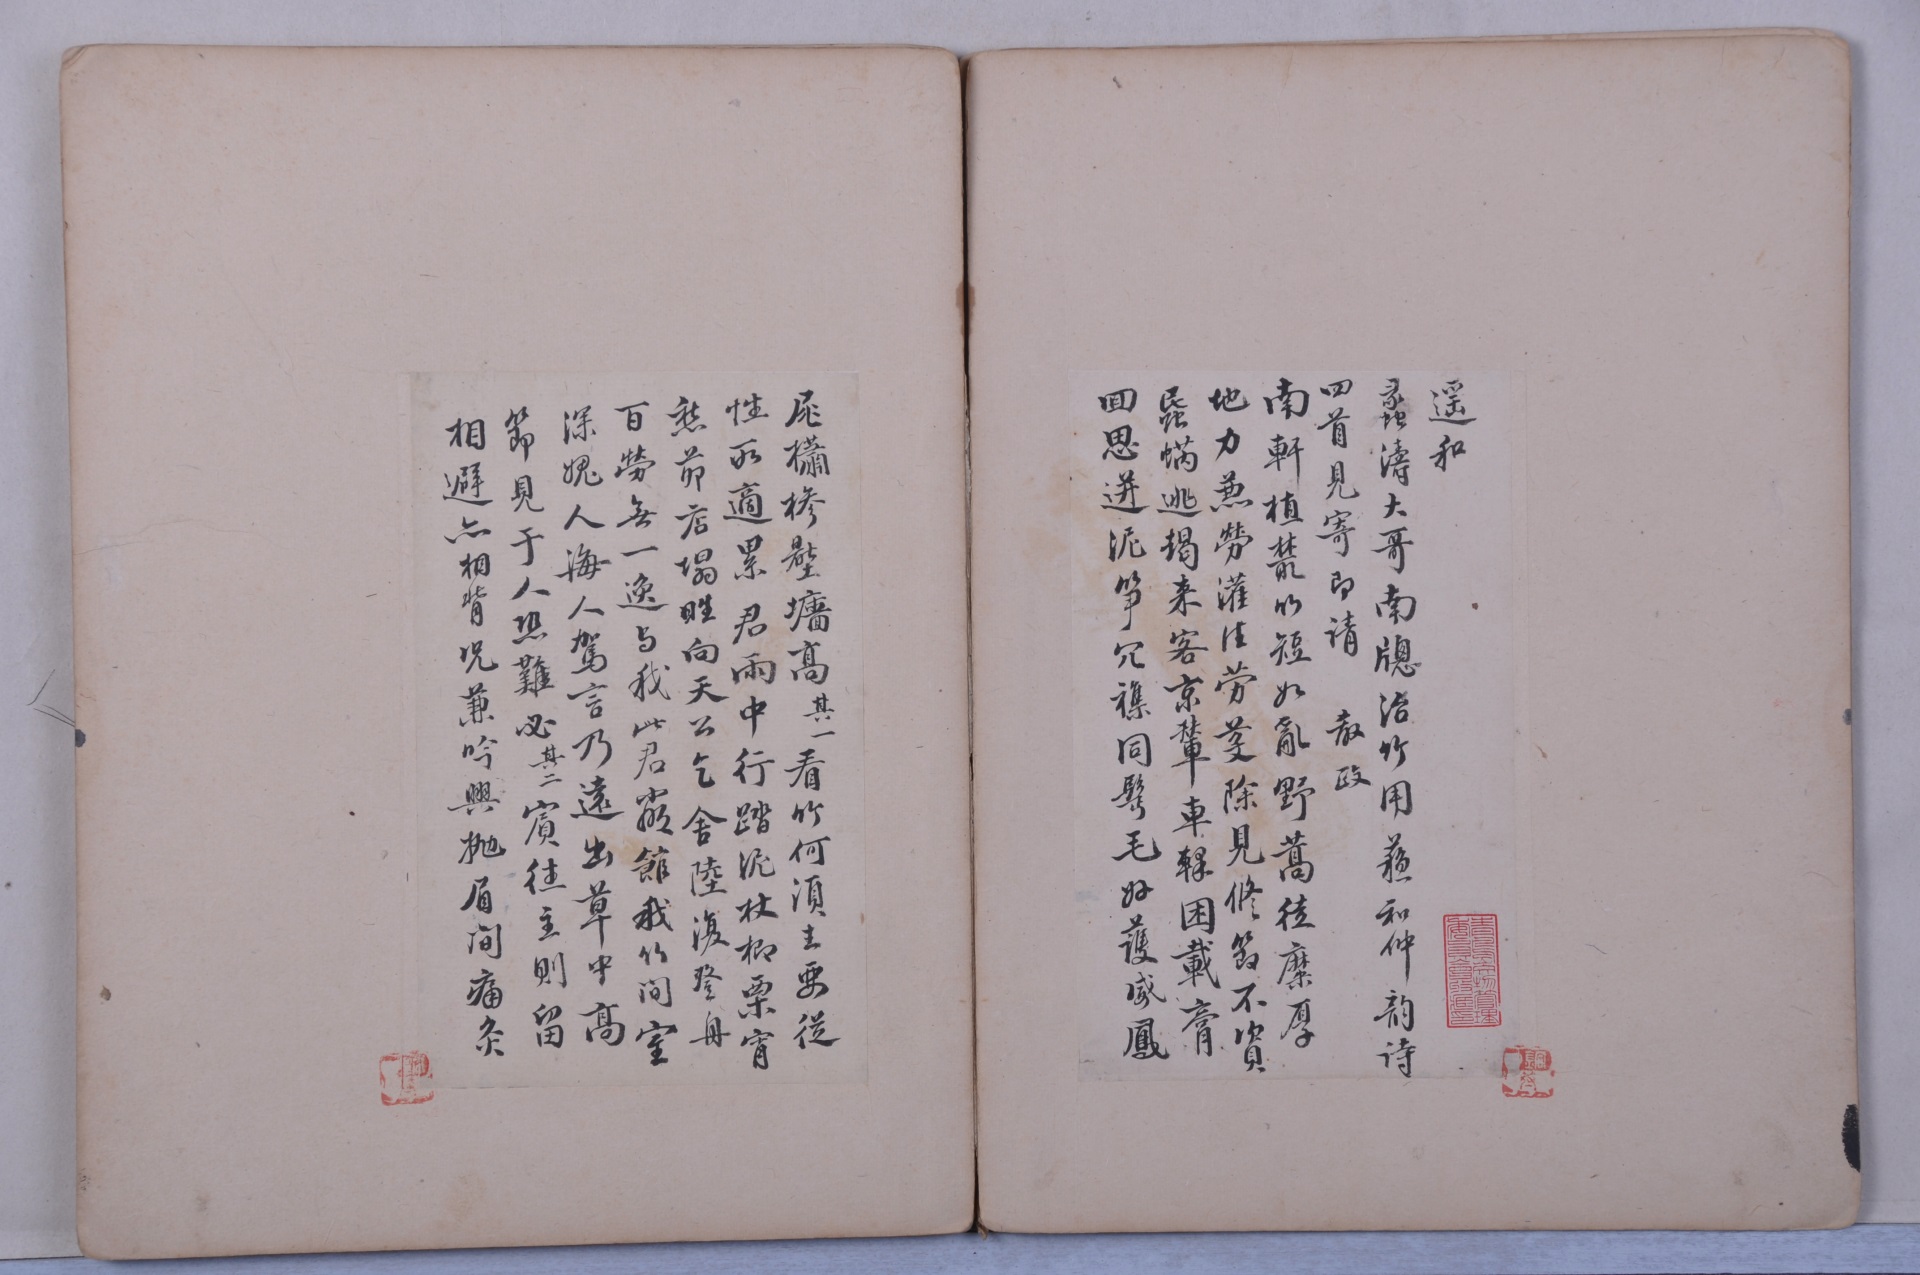 遥和
蠡濤大哥南牕治竹用蘇和仲韵诗
四首見寄即请 教政
南軒植叢竹短如亂野蒿徒糜厚
地力兼勞灌注劳芟除見修節不資
蟁蜹逃朅来客京輦車鞣困載膏
回思迸泥笋冗襍同髩毛好護威鳳
尾櫹槮壓墻高其一看竹何須主要從
性所適累君雨中行踏泥杖柳栗宵
愁茆店塌晴向天公乞舍陸復登舟
百勞無一逸与我此君嚴館我竹间室
深媿人海人駕言乃遠出草中高
節見于人恐難必其二賓徃主則留
相避亦相背况兼吟興拋眉间痛灸